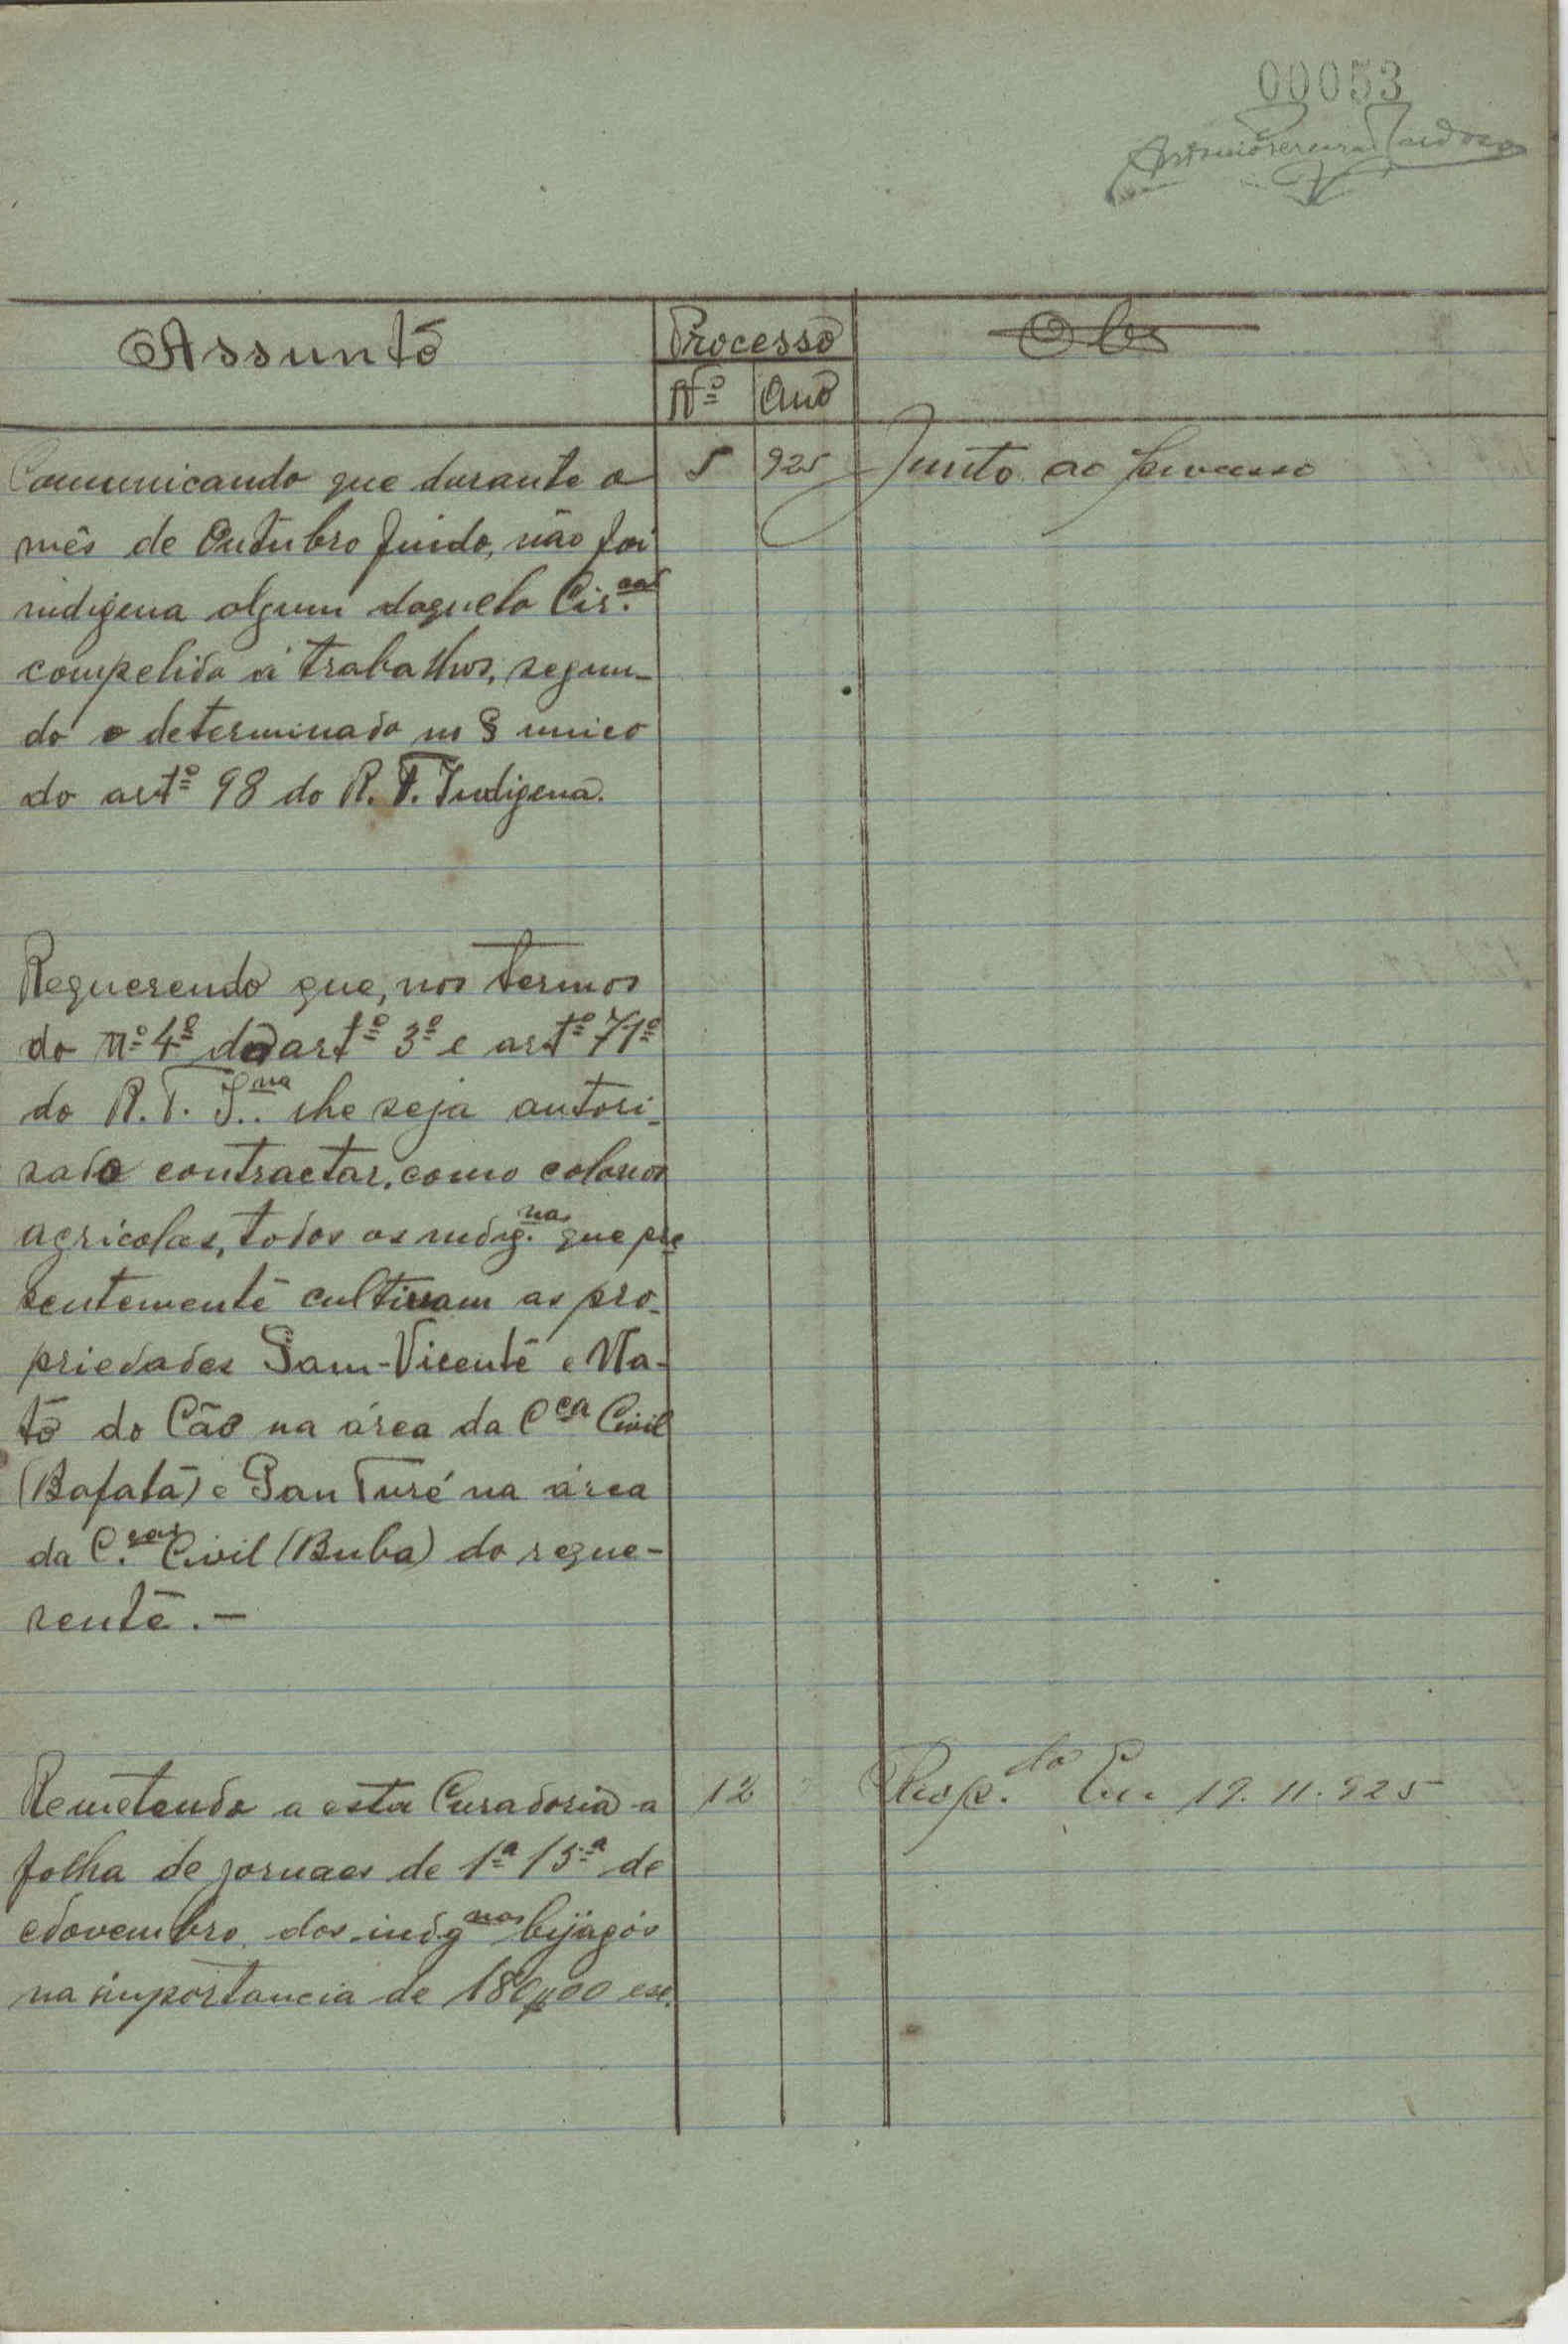 00053
Assunto
Processo
Obs
Nº Ano
Comunicando que durante o 5 925 Junto ao processo
mês de Outubro findo, não foi
indigena algum daquela Cir.
compelido a trabalhos, segun-
do o determinado no § unico
do artº 98 do R. T. Indigena.
Requerendo que, nos termos
do nº 4º do artº 3º e artº 71º
do R. T. I.na lhe seja autori-
sado contractar, como colonos
agricolas, todos os indig.nas que pre
sentemente cultivam as pro-
priedades Sam-Vicente e Ma-
to do Cão na área da Cca Civil
(Bafatá) e San Turé na área
da C. Civil (Buba) do reque-
rente. -
Remetendo a esta Curadoria a 12 Resp.do Em 19.11.925
folha de jornaes de 1ª 15.ª de
Novembro, dos indgnas bijagós
na importancia de 180$00 esc.